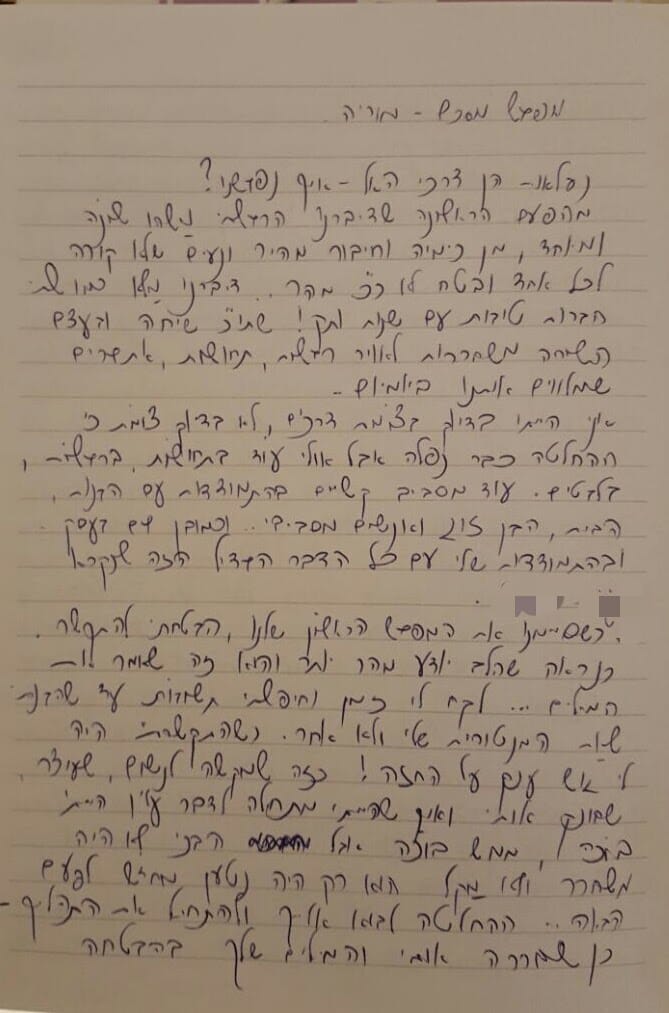 מפגש מסכם - מוריה.
נפלאו- הן דרכי האל - איך נפגשנו?
מהפעם הראשונה שדיברנו הרגשתי משהו שונה
ומיוחד, מן כימיה וחיבור מהיר ונעים שלא קורה
לכל אחד ובטח לא כ"כ מהר.. דיברנו כמו שתי
חברות טובות עם שנות ותק! שתי שיחה ובעצם
השיחה משחררות לאוויר רגשות, תחושות, אתגרים
שמלווים אותנו ביומיום -
אני הייתי בדיוק בצומת דרכים, לא בדיוק צומת כי
ההחלטה כבר נפלה אבל אולי עוד בתחושות, ברגשות,
בלבטים. עוד מסביב קשיים בהתמודדות עם הבנות,
הבית, הבן זוג ואנשים מסביבי.. וכמובן גם בעסק
ובהתמודדות שלי עם כל הדבר הגדול הזה שנקרא
כשסיימנו את המפגש הראשון שלנו, הבטחתי להתקשר.
כנראה שהלב יודע מהר יותר והוא זה שאומר את
המילים ... לקח לי זמן וחיפשתי תשובות עד שהבנתי
שאת המנטורית שלי ולא אחר. כשהתקשרתי היה
לי אש ענק על החזה! כזה שמקשה לנשום, שעוצר,
שחונק אותי ואיך שהייתי מתחילה לדבר עליו הייתי
בוכה, ממש בוכה אבל הבכי לא היה
משחרר ולא מקל הוא רק היה נטען מחדש לפעם
הבאה.. ההחלטה לבוא אליך ולהתחיל את התהליך -
כן שחררה אותי והמילים שלך בהבטחה